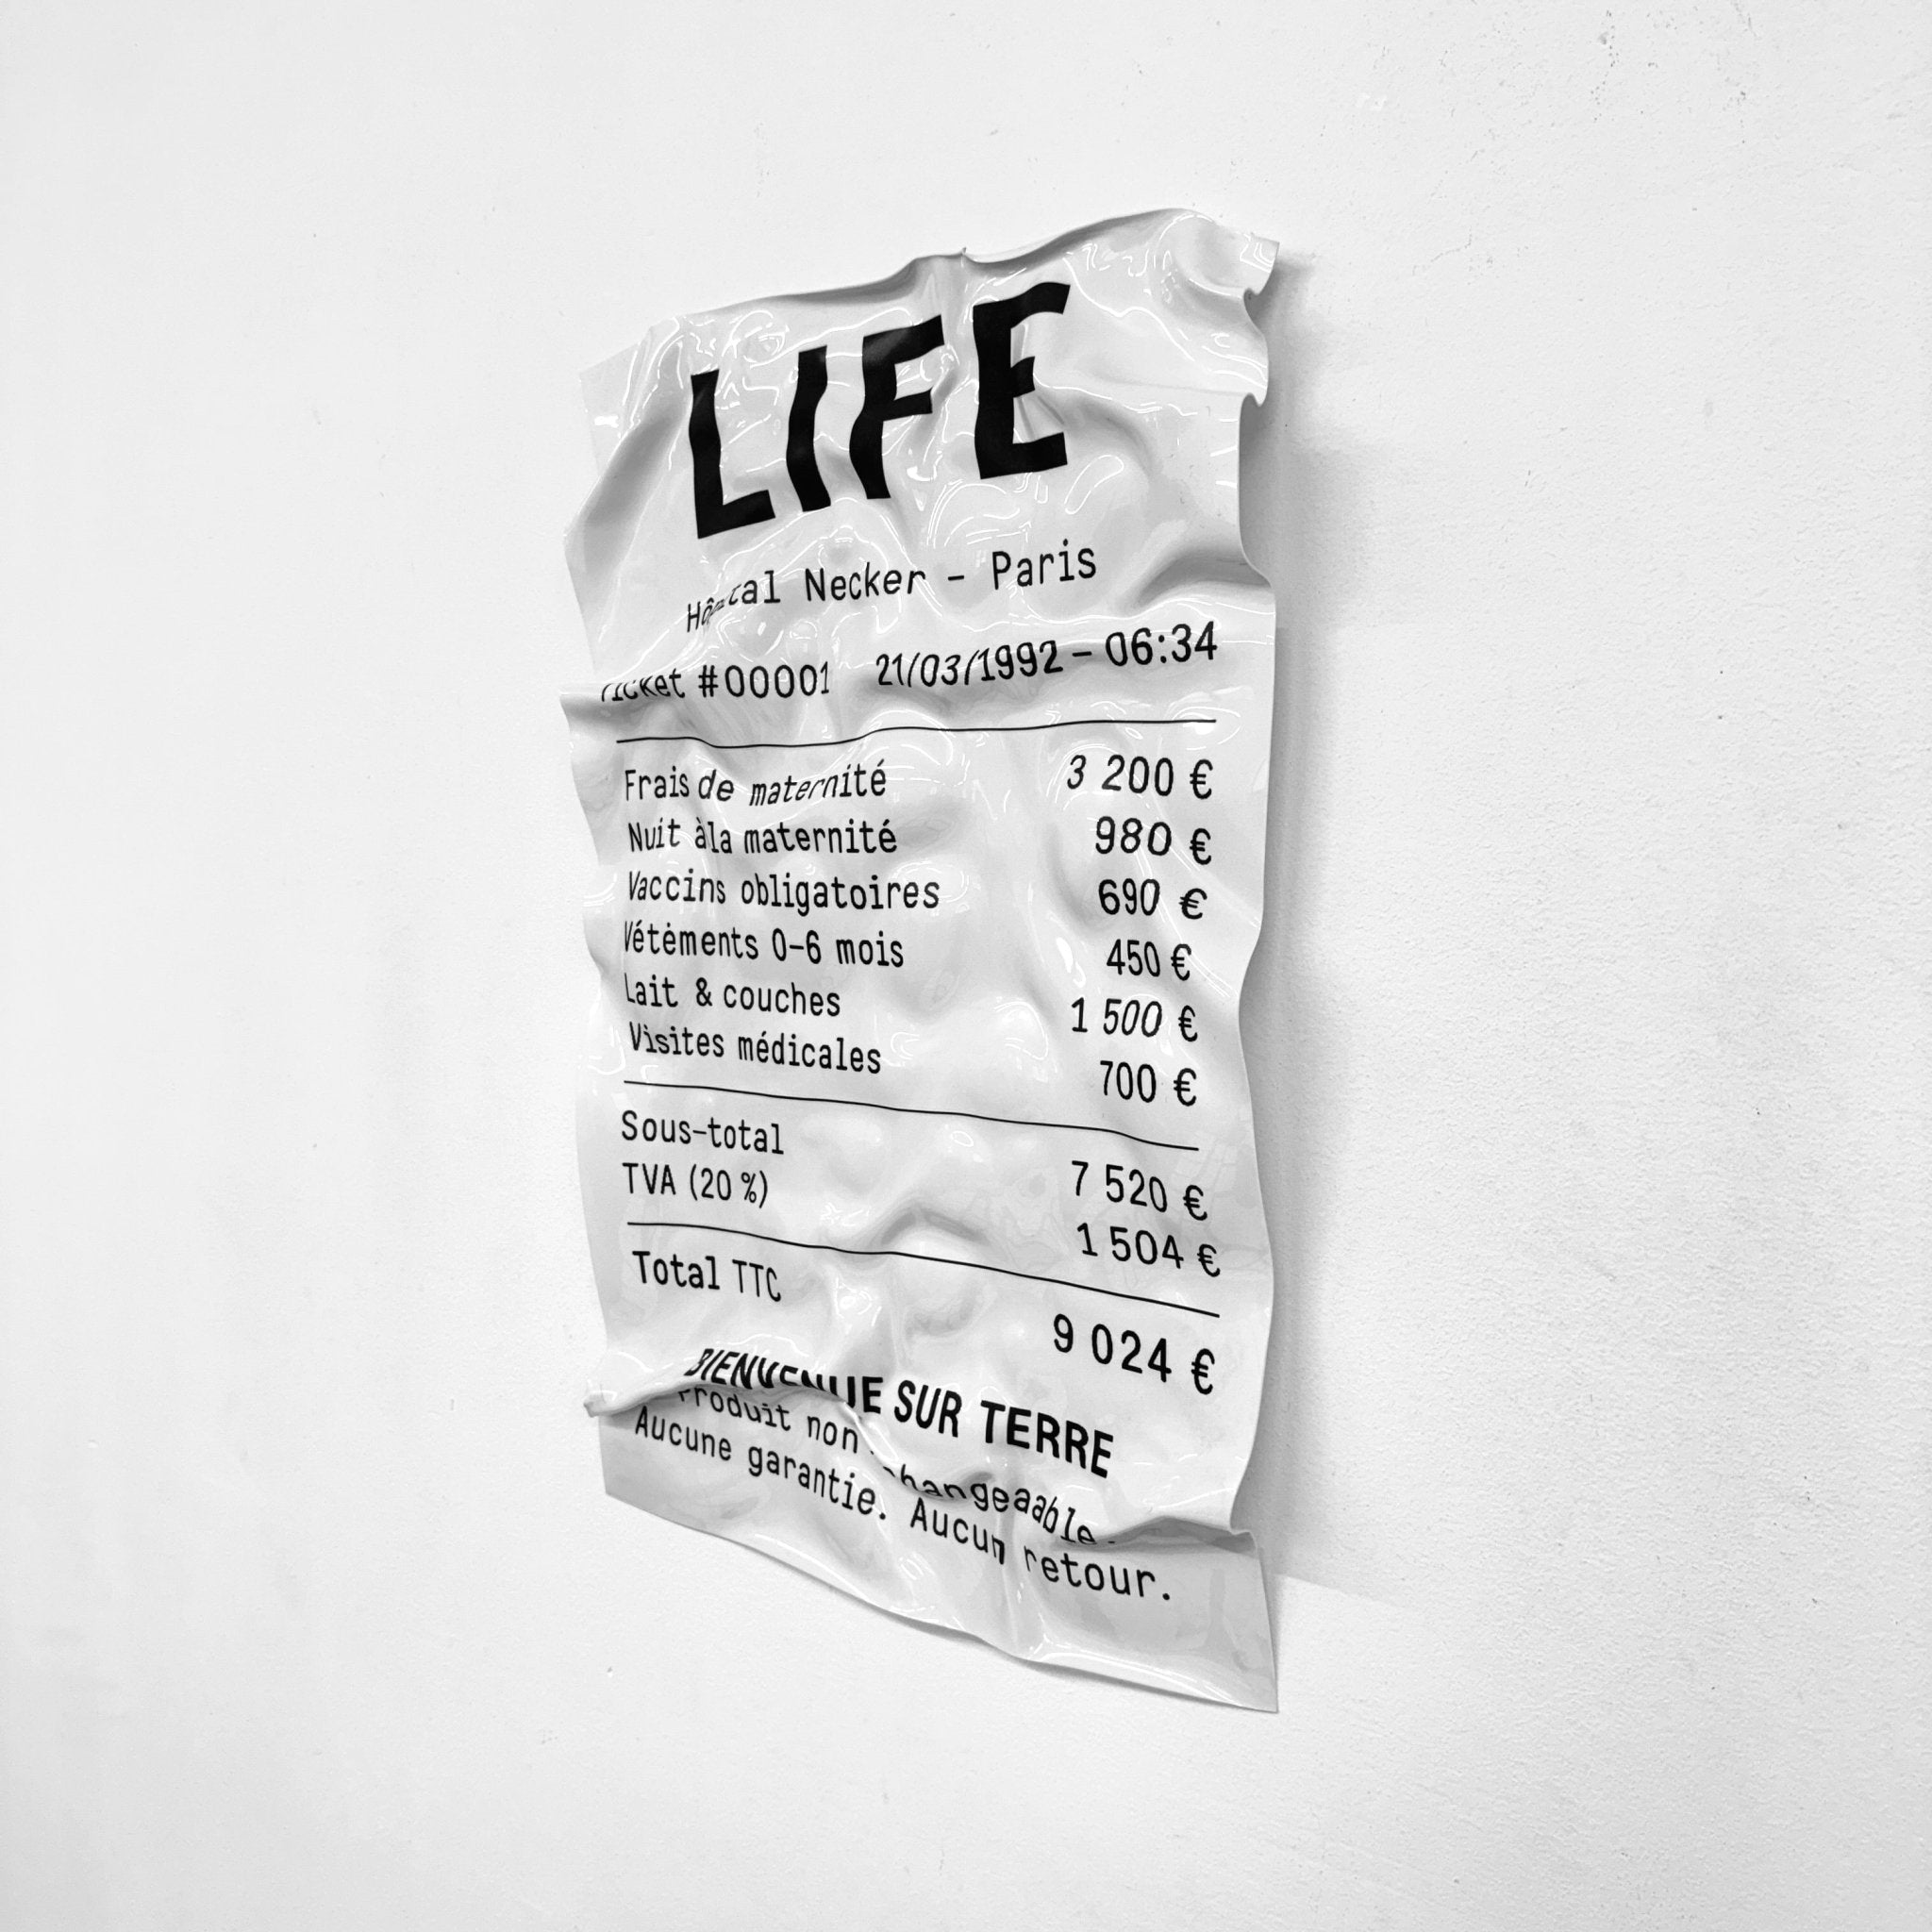 LIFE
Hôpital Necker - Paris
Ticket #00001 21/03/1992 - 06:34
Frais de maternité 3 200 €
Nuit àla maternité 980 €
Vaccins obligatoires 690 €
Vétėments 0-6 mois 450 €
Lait & couches 1 500 €
Visites médicales 700 €
Sous-total 7 520 €
TVA (20 %) 1 504 €
Total TTC 9 024 €
BIENVENUE SUR TERRE
Produit non
Aucune garantie. Aucun retour.